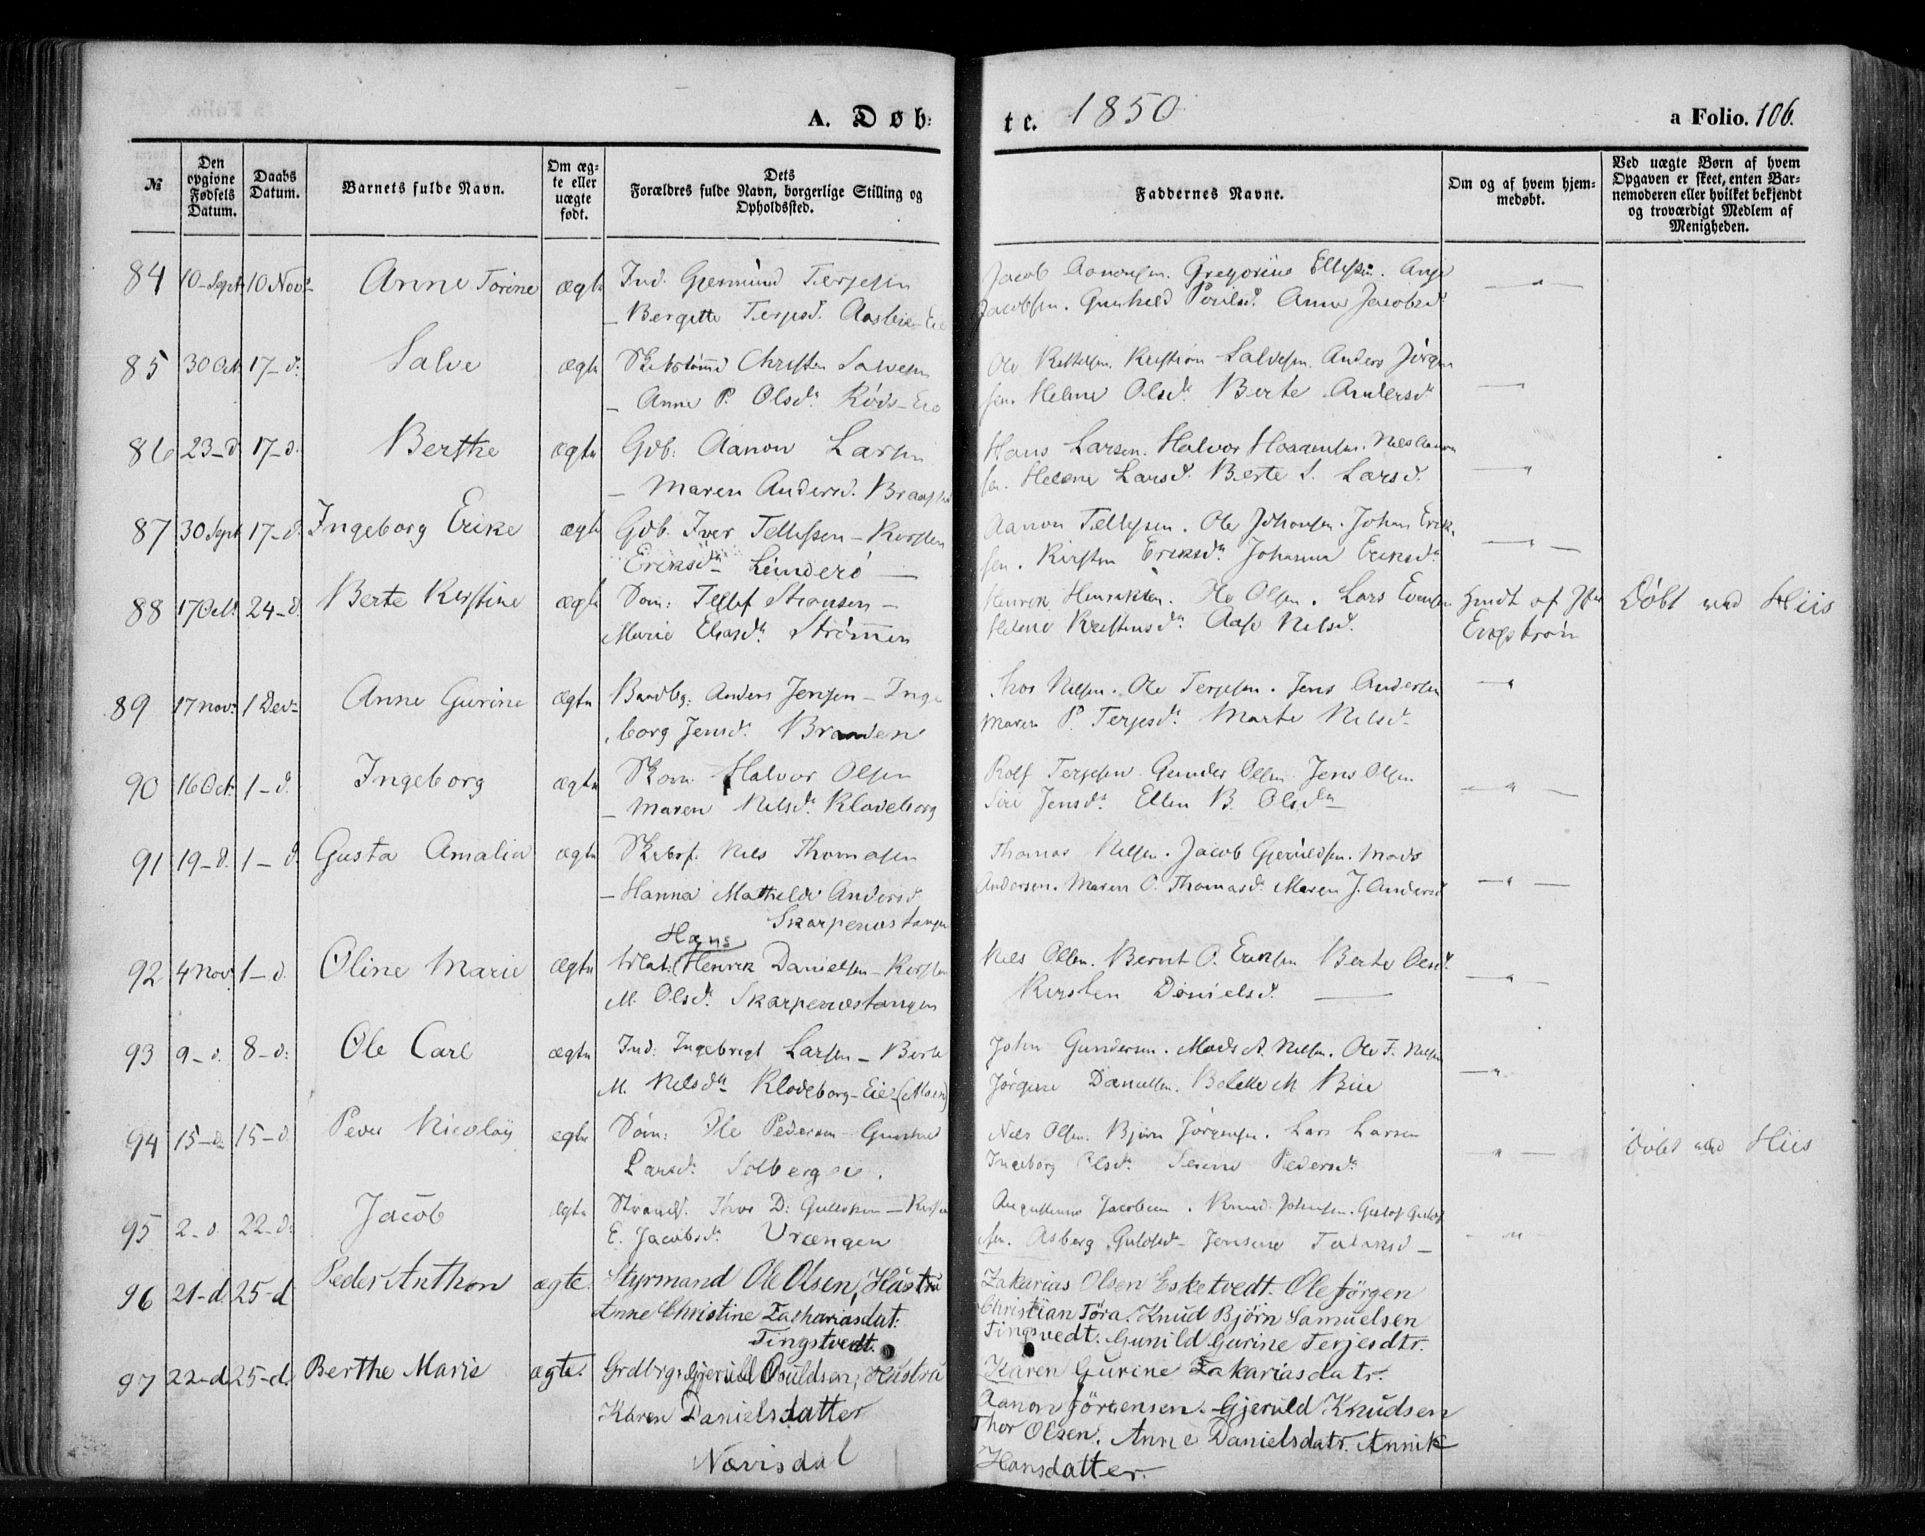 A. Døb:
te. 1850
a Folio. 106.
№
Den opgivne Fødsels Datum.
Daabs Datum.
Barnets fulde Navn.
Om ægte eller uægte født.
Dets Forældres fulde Navn, borgerlige Stilling og Opholdssted.
Faddernes Navne.
Om og af hvem hjemmedøbt.
Ved uægte Børn af hvem Opgaven er skeet, enten Barnemoderen eller hvilket bekjendt og troværdigt Medlem af Menigheden.
84 10-Sept 10 Nov Anne Torine ægte Ind. Gjermund Terjesen
– Bergitte Terjesd.
Jacob Aanonsen. Gregorine Ellefsen.
Jacobsen. Gunhild Poulsd. Anne Jacobsd
85 30 Oct 17-d: Salve ægte Christen Salvesen
– Anne P. Olsd. Röds-Eie
Ole Kittelsen. Kristian Salvesen. Anders Jörgen
sen. Helene Olsd. Berte Andersd
86 23-d 17-d. Berthe ægte Gdb: Aanon Larsen
– Maren Andersd.
Hans Larsen. Halvor
sen. Helene Larsd. Berte S. Larsd.
87 30 Sept 17-d. Ingeborg Erike ægte Gdb. Iver Tellefsen – Kirsten
Eriksd. Lunderö
Aanon Tellefsen. Ole Johansen. Johan Erik
sen. Kirsten Eriksd. Johanna Eriksd
88 17 Oct. 24-d. Berte Kirstine ægte Söm: Tellef –
Marie Strömmen
Henrik Henriksen. Ole Olsen. Lars Evensen
Helene Kristensd. Aase Nilsd.
Döbt ved Hiis
89 17 nov. 1 Dec. Anne Gurine ægte Anders Jensen – Inge
borg Jensd. Branden
Thor Nilsen. Ole Terjesen. Jens Andersen
Maren P. Terjesd. Marte Nilsd.
90 16 Oct. 1-d. Ingeborg ægte Skom. Halvor Olsen
– Maren Nilsd. Klodeborg
Rolf Terjesen. Gunder Olsen. Jens Olsen.
Siri Jensd. Ellen B. Olsd
91 19-d. 1-d. Gusta Amalia ægte Nils Thomasen
– Hanna Mathilde Andersd
Skarpenæstangen
Thomas Nilsen. Jacob Gjeruldsen. Mads
Andersen. Maren O. Thomasd. Maren J. Andersd
Hans
92 4 Nov. 1-d. Oline Marie ægte Henrik Danielsen – Kirsten
M. Olsd. Skarpenæstangen
Nils Olsen. Bernt O. Eriksen Berte Olsd.
Kirsten Danielsd.
93 9-d. 8-d: Ole Carl ægte Ind: Ingebrigt Larsen – Berte
M. Nilsd. Klodeborg-Eie (Moen)
John Gundersen. Mads A. Nilsen. Ole F. Nilsen
Jörgine Danielsen. Bolette M Bie
94 15-d. 15-d. Peder Nicolaÿ ægte Söm: Ole Pedersen – Gunhild
Larsd. Solbergeie.
Nils Olsen. Björn Jörgensen. Lars Larsen
Ingeborg Olsd. Serine Pedersd.
Döbt ved Hiis
95 2-d. 22-d: Jacob ægte Thor D: Gulofsen – Kirsten
E. Jacobsd. Vrængen
Augustinus Jacobsen. Knud Johnsen. Gulof Gulof
sen. Asberg Gulofsd – Jensine –
96 21-d. 25-d Peder Anthon ægte. Styrmand Ole Olsen, Hustru
Anne Christine Zachariasdat:
Tingstvedt.
Zakarias Olsen Esketvedt. Ole Jörgen
Christian Töra. Knud Björn Samuelsen
Tingsvedt. Gunild Gurine Terjesdtr.
Karen Gurine Zakariasdatr.
97 22-d 25-d. Berthe Marie ægte. Grdbrg: Gjeruld Osuldsen, Hustru
Karen Danielsdatter
Nævisdal
Aanon Jörgensen. Gjeruld Knudsen
Thor Olsen. Anne Danielsdatr. Annik
Hansdatter.